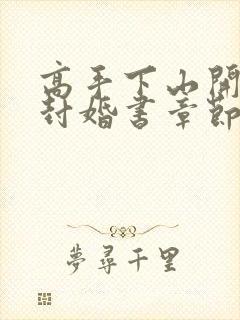 高手下山開
封婚書章節
夢尋千里